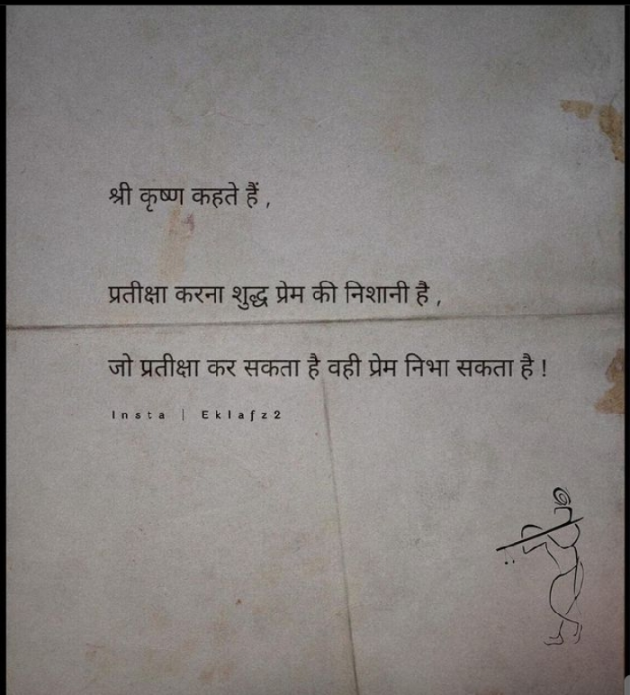 श्री कृष्ण कहते हैं ,
प्रतीक्षा करना शुद्ध प्रेम की निशानी है ,
जो प्रतीक्षा कर सकता है वही प्रेम निभा सकता है !
Insta | Eklafz2